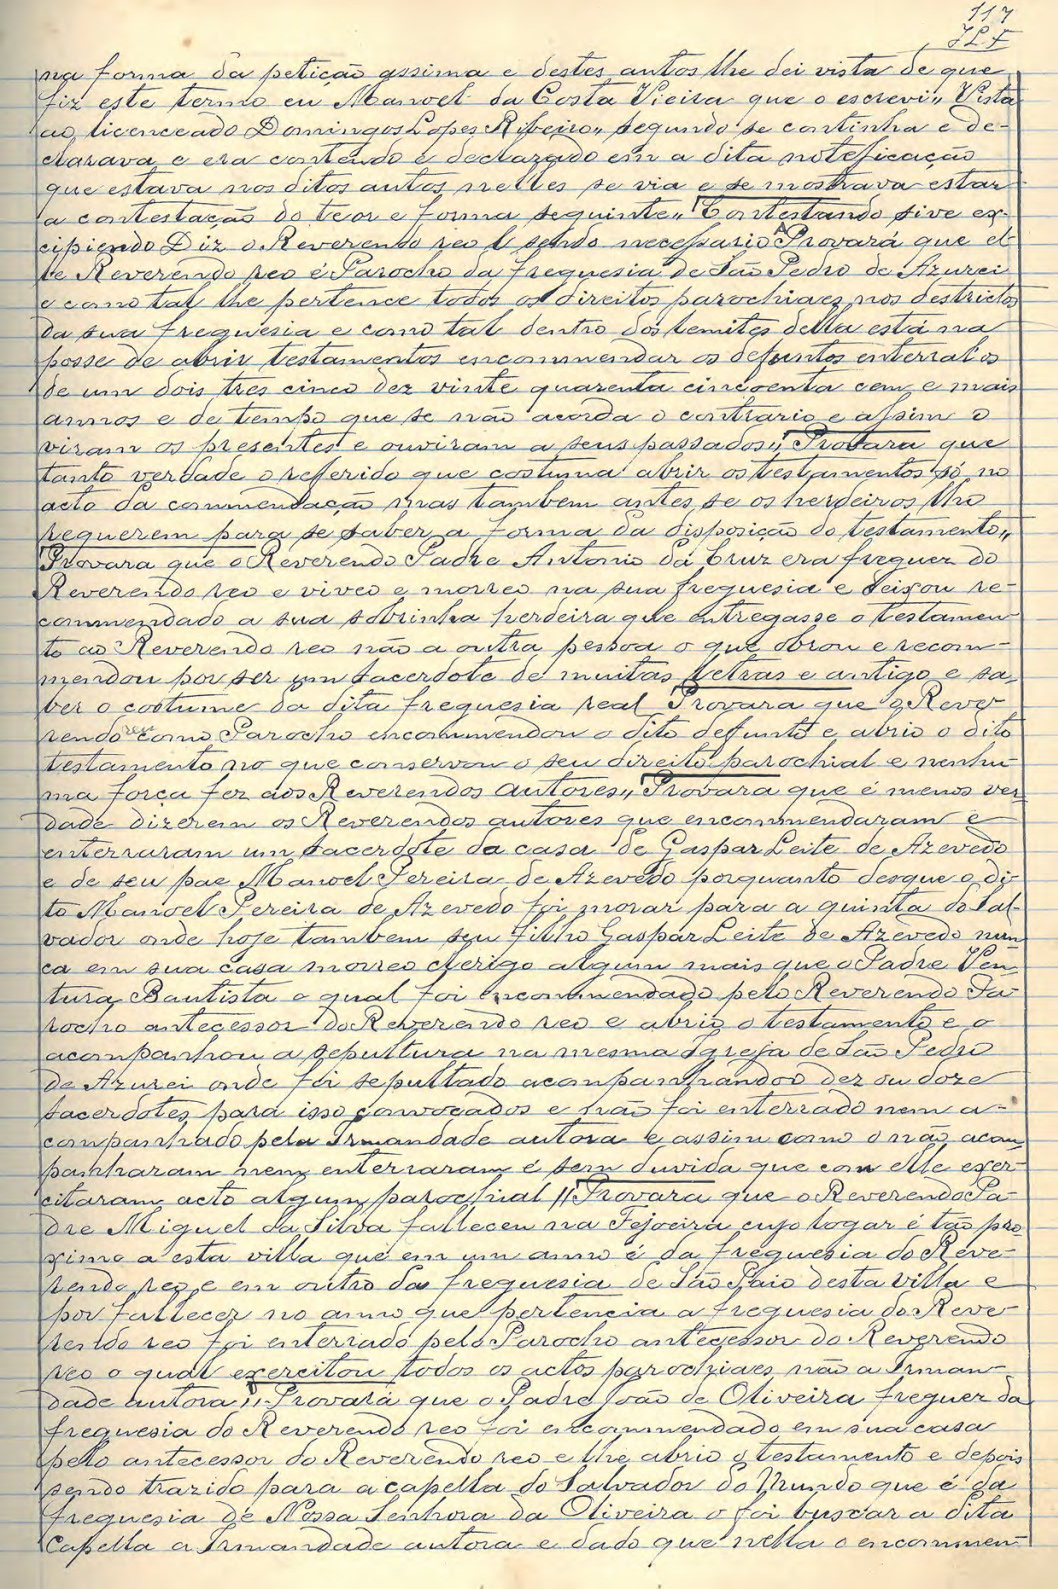 117
J L F
na forma da petição assima e destes autos lhe dei vista de que
fiz este termo eu Manoel da Costa Vieira que o escrevi,, Vista
ao licenceado Domingos Lopes Ribeiro,, segundo se continha e de-
clarava e era contendo e declarado em a dita noteficação
que estava nos ditos autos nelles se via e se mostrava estar
a contestação do teor e forma seguinte,, Contestando sive ex-
cipiendo Diz o Reverendo reo E sendo necessario Provará que el-
le Reverendo reo é Parocho da freguesia de São Pedro de Azurei
e como tal lhe pertence todos os direitos parochiaes nos destrictos
da sua freguesia e como tal dentro dos lemites della está na
posse de abrir testamentos encommendar os defuntos enterral os
de um dois tres cinco dez vinte quarenta cincoenta cem e mais
annos e de tempo que se não acorda o contrario e assim o
viram os presentes e ouviram a seus passados,, Provara que
tanto verdade o referido que costuma abrir os testamentos só no
acto da commendação mas tambem antes se os herdeiros lho
requerem para se saber a forma da disposição do testamento,,
Provara que o Reverendo Padre Antonio da Cruz era freguez do
Reverendo reo e viveo e morreo na sua freguesia e deixou re-
commendado a sua sobrinha herdeira que entregasse o testamen-
to ao Reverendo reo não a outra pessoa o que obrou e recom-
mendou por ser um sacerdote de muitas letras e antigo e sa-
ber o costume da dita freguesia real Provara que o Reve-
rendo reo como Parocho encommendou o dito deffunto e abrio o dito
testamento no que conservou o seu direito parochial e nenhu-
ma força fez aos Reverendos autores,, Provara que é menos ver
dade dizerem os Reverendos autores que encommendaram e
enterraram um sacerdote da casa de Gaspar Leite de Azevedo
e de seu pae Manoel Pereira de Azevedo porquanto desque o di-
to Manoel Pereira de Azevedo foi morar para a quinta do Sal-
vador onde hoje tambem seu filho Gaspar Leite de Azevedo nun
ca em sua casa morreo clerigo algum mais que o Padre Ven-
tura Bautista o qual foi encommendado pelo Reverendo Pa-
rocho antecessor do Reverendo reo e abrio o testamento e o
acompanhou a sepultura na mesma Igreja de São Pedro
de Azurei onde foi sepultado acompanhandoo dez ou doze
sacerdotes para isso convocados e não foi enterrado nem a-
companhado pela Irmandade autora e assim como o não acom
panharam nem enterraram é sem duvida que com elle exer-
citaram acto algum parochial,, Provara que o Reverendo Pa-
dre Miguel da Silva falleceu na Fejoeira cujo logar é tão pro
ximo a esta villa que em um anno é da freguesia do Reve-
rendo reo e em outro da freguesia de São Paio desta villa e
por fallecer no anno que pertencia a freguesia do Reve-
rendo reo foi enterrado pelo Parocho antecessor do Reverendo
reo o qual exercitou todos os actos parochiaes não a Irman-
dade autora,, Provará que o Padre João de Oliveira freguez da
freguesia do Reverendo reo foi encommendado em sua casa
pelo antecessor do Reverendo reo e lhe abrio o testamento e depois
sendo trazido para a capella do Salvador do Mundo que é da
freguesia de Nossa Senhora da Oliveira o foi buscar a dita
capella a Irmandade autora e dado que nella o encommen-